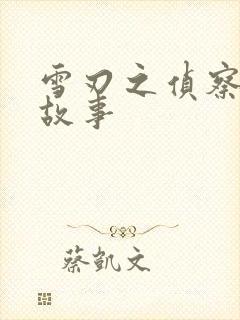 雪刃之偵察
故事
蔡凱文